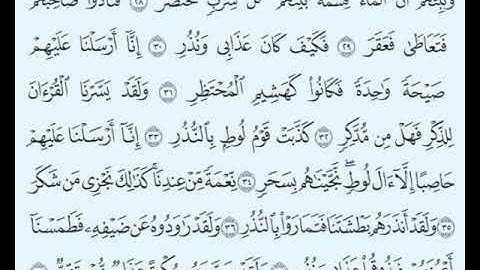 وَنَبِّئْهُمْ أَنَّ ٱلْمَآءَ قِسْمَةٌۢ بَيْنَهُمْ كُلُّ شِرْبٍ مُّحْتَضَرٌ ٢٨ فَنَادَوْا۟ صَاحِبَهُمْ
فَتَعَاطَىٰ فَعَقَرَ ٢٩ فَكَيْفَ كَانَ عَذَابِى وَنُذُرِ ٣٠ إِنَّآ أَرْسَلْنَا عَلَيْهِمْ
صَيْحَةً وَٰحِدَةً فَكَانُوا۟ كَهَشِيمِ ٱلْمُحْتَظِرِ ٣١ وَلَقَدْ يَسَّرْنَا ٱلْقُرْءَانَ
لِلذِّكْرِ فَهَلْ مِن مُّدَّكِرٍ ٣٢ كَذَّبَتْ قَوْمُ لُوطٍۭ بِٱلنُّذُرِ ٣٣ إِنَّآ أَرْسَلْنَا عَلَيْهِمْ
حَاصِبًا إِلَّآ ءَالَ لُوطٍ ۖ نَّجَّيْنَٰهُم بِسَحَرٍ ٣٤ نِّعْمَةً مِّنْ عِندِنَا ۚ كَذَٰلِكَ نَجْزِى مَن شَكَرَ
٣٥ وَلَقَدْ أَنذَرَهُم بَطْشَتَنَا فَتَمَارَوْا۟ بِٱلنُّذُرِ ٣٦ وَلَقَدْ رَٰوَدُوهُ عَن ضَيْفِهِۦ فَطَمَسْنَآ